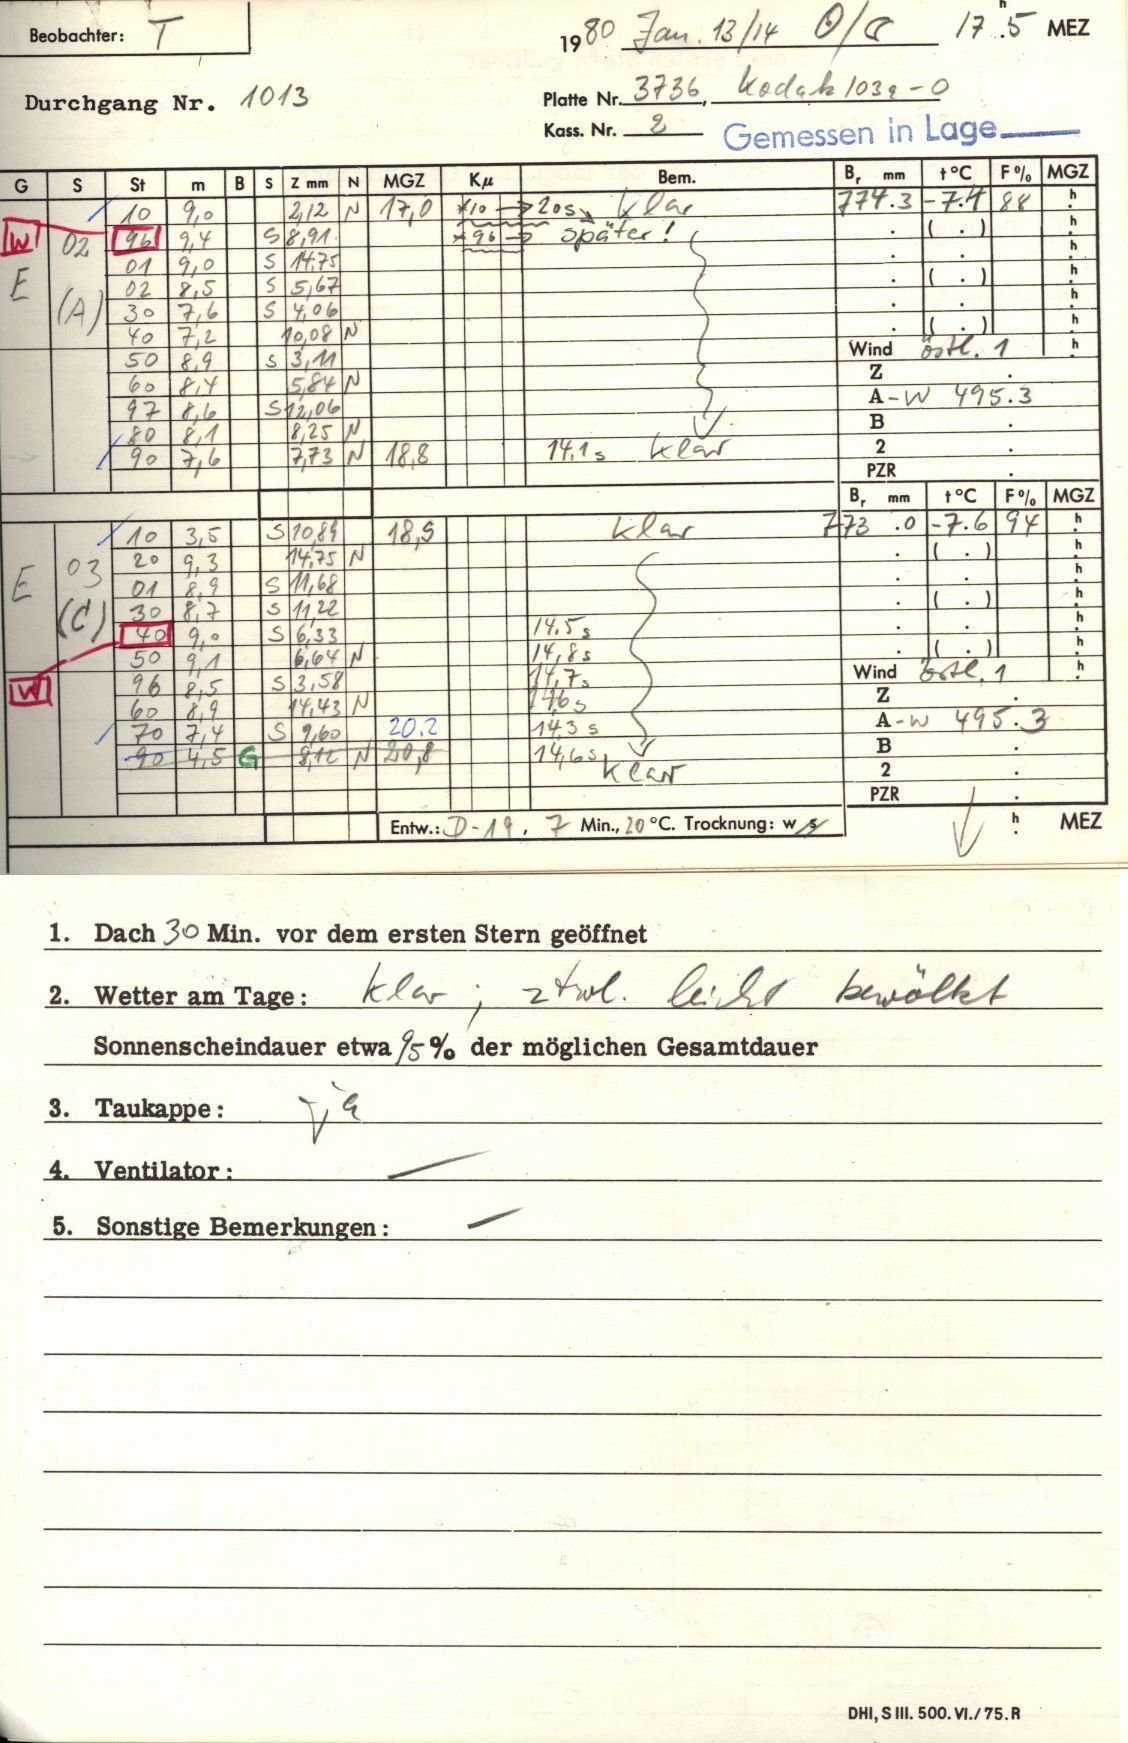 Beobachter: T
1980 Jan. 13/14 17.5 h MEZ
Durchgang Nr. 1013
Platte Nr. 3736, Kodak 103a-O
Kass. Nr. 2
Gemessen in Lage
G S St m B S Z mm N MGZ Kμ Bem. Br mm t°C F% MGZ
10 9,0 2,12 N 17,0 *10 → 20s klar 774.3 -7.4 88 h
W 02 96 9,4 S 8,91 *96 → später! ( . ) h
E 01 9,0 S 14,75 . . h
02 8,5 S 5,67 . ( . ) h
(A) 30 7,6 S 4,06 . . h
40 7,2 10,08 N . ( . ) h
50 8,9 S 3,11 Wind östl. 1 h
60 8,4 5,84 N Z .
97 8,6 S 12,06 A-W 495.3
80 8,1 8,25 N B .
90 7,6 7,73 N 18,8 14.1s klar 2 .
PZR .
Br mm t°C F% MGZ
10 3,5 S 10,89 18,9 klar 773.0 -7.6 94 h
20 9,3 14,75 N . ( . ) h
E 03 01 8,9 S 11,68 . . h
(C) 30 8,7 S 11,22 . ( . ) h
40 9,0 S 6,33 14.5s . . h
50 9,1 6,64 N 14,8s . ( . ) h
W 96 8,5 S 3,58 14,7s Wind östl. 1 h
60 8,9 14,43 N 14,6s Z .
70 7,4 S 9,60 20.2 14,3s A-W 495.3
90 4,5 G 8,12 N 20,8 14,6s klar B .
2 .
PZR .
Entw.: D-19, 7 Min., 20 °C. Trocknung: w/s h MEZ
1. Dach 30 Min. vor dem ersten Stern geöffnet
2. Wetter am Tage: klar; ztwl. leicht bewölkt
Sonnenscheindauer etwa 95% der möglichen Gesamtdauer
3. Taukappe: ja
4. Ventilator: —
5. Sonstige Bemerkungen: —
DHI, S III. 500. VI./75. R